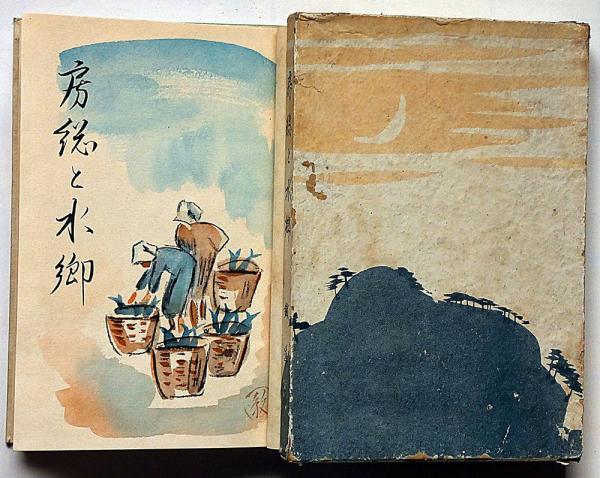 房総と水郷